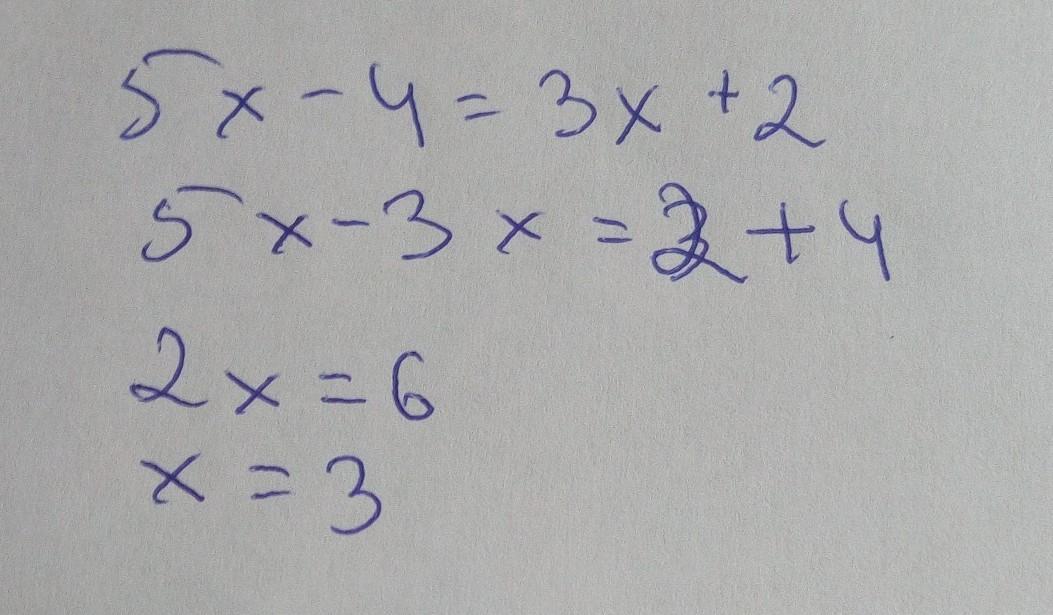 5x - 4 = 3x + 2
5x - 3x = 2 + 4
2x = 6
x = 3